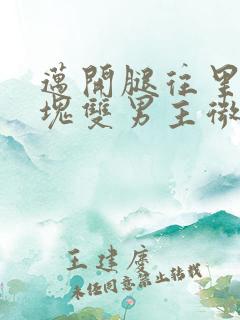 邁開腿往里
塊雙男主微
王建慶
未经同意禁止转载